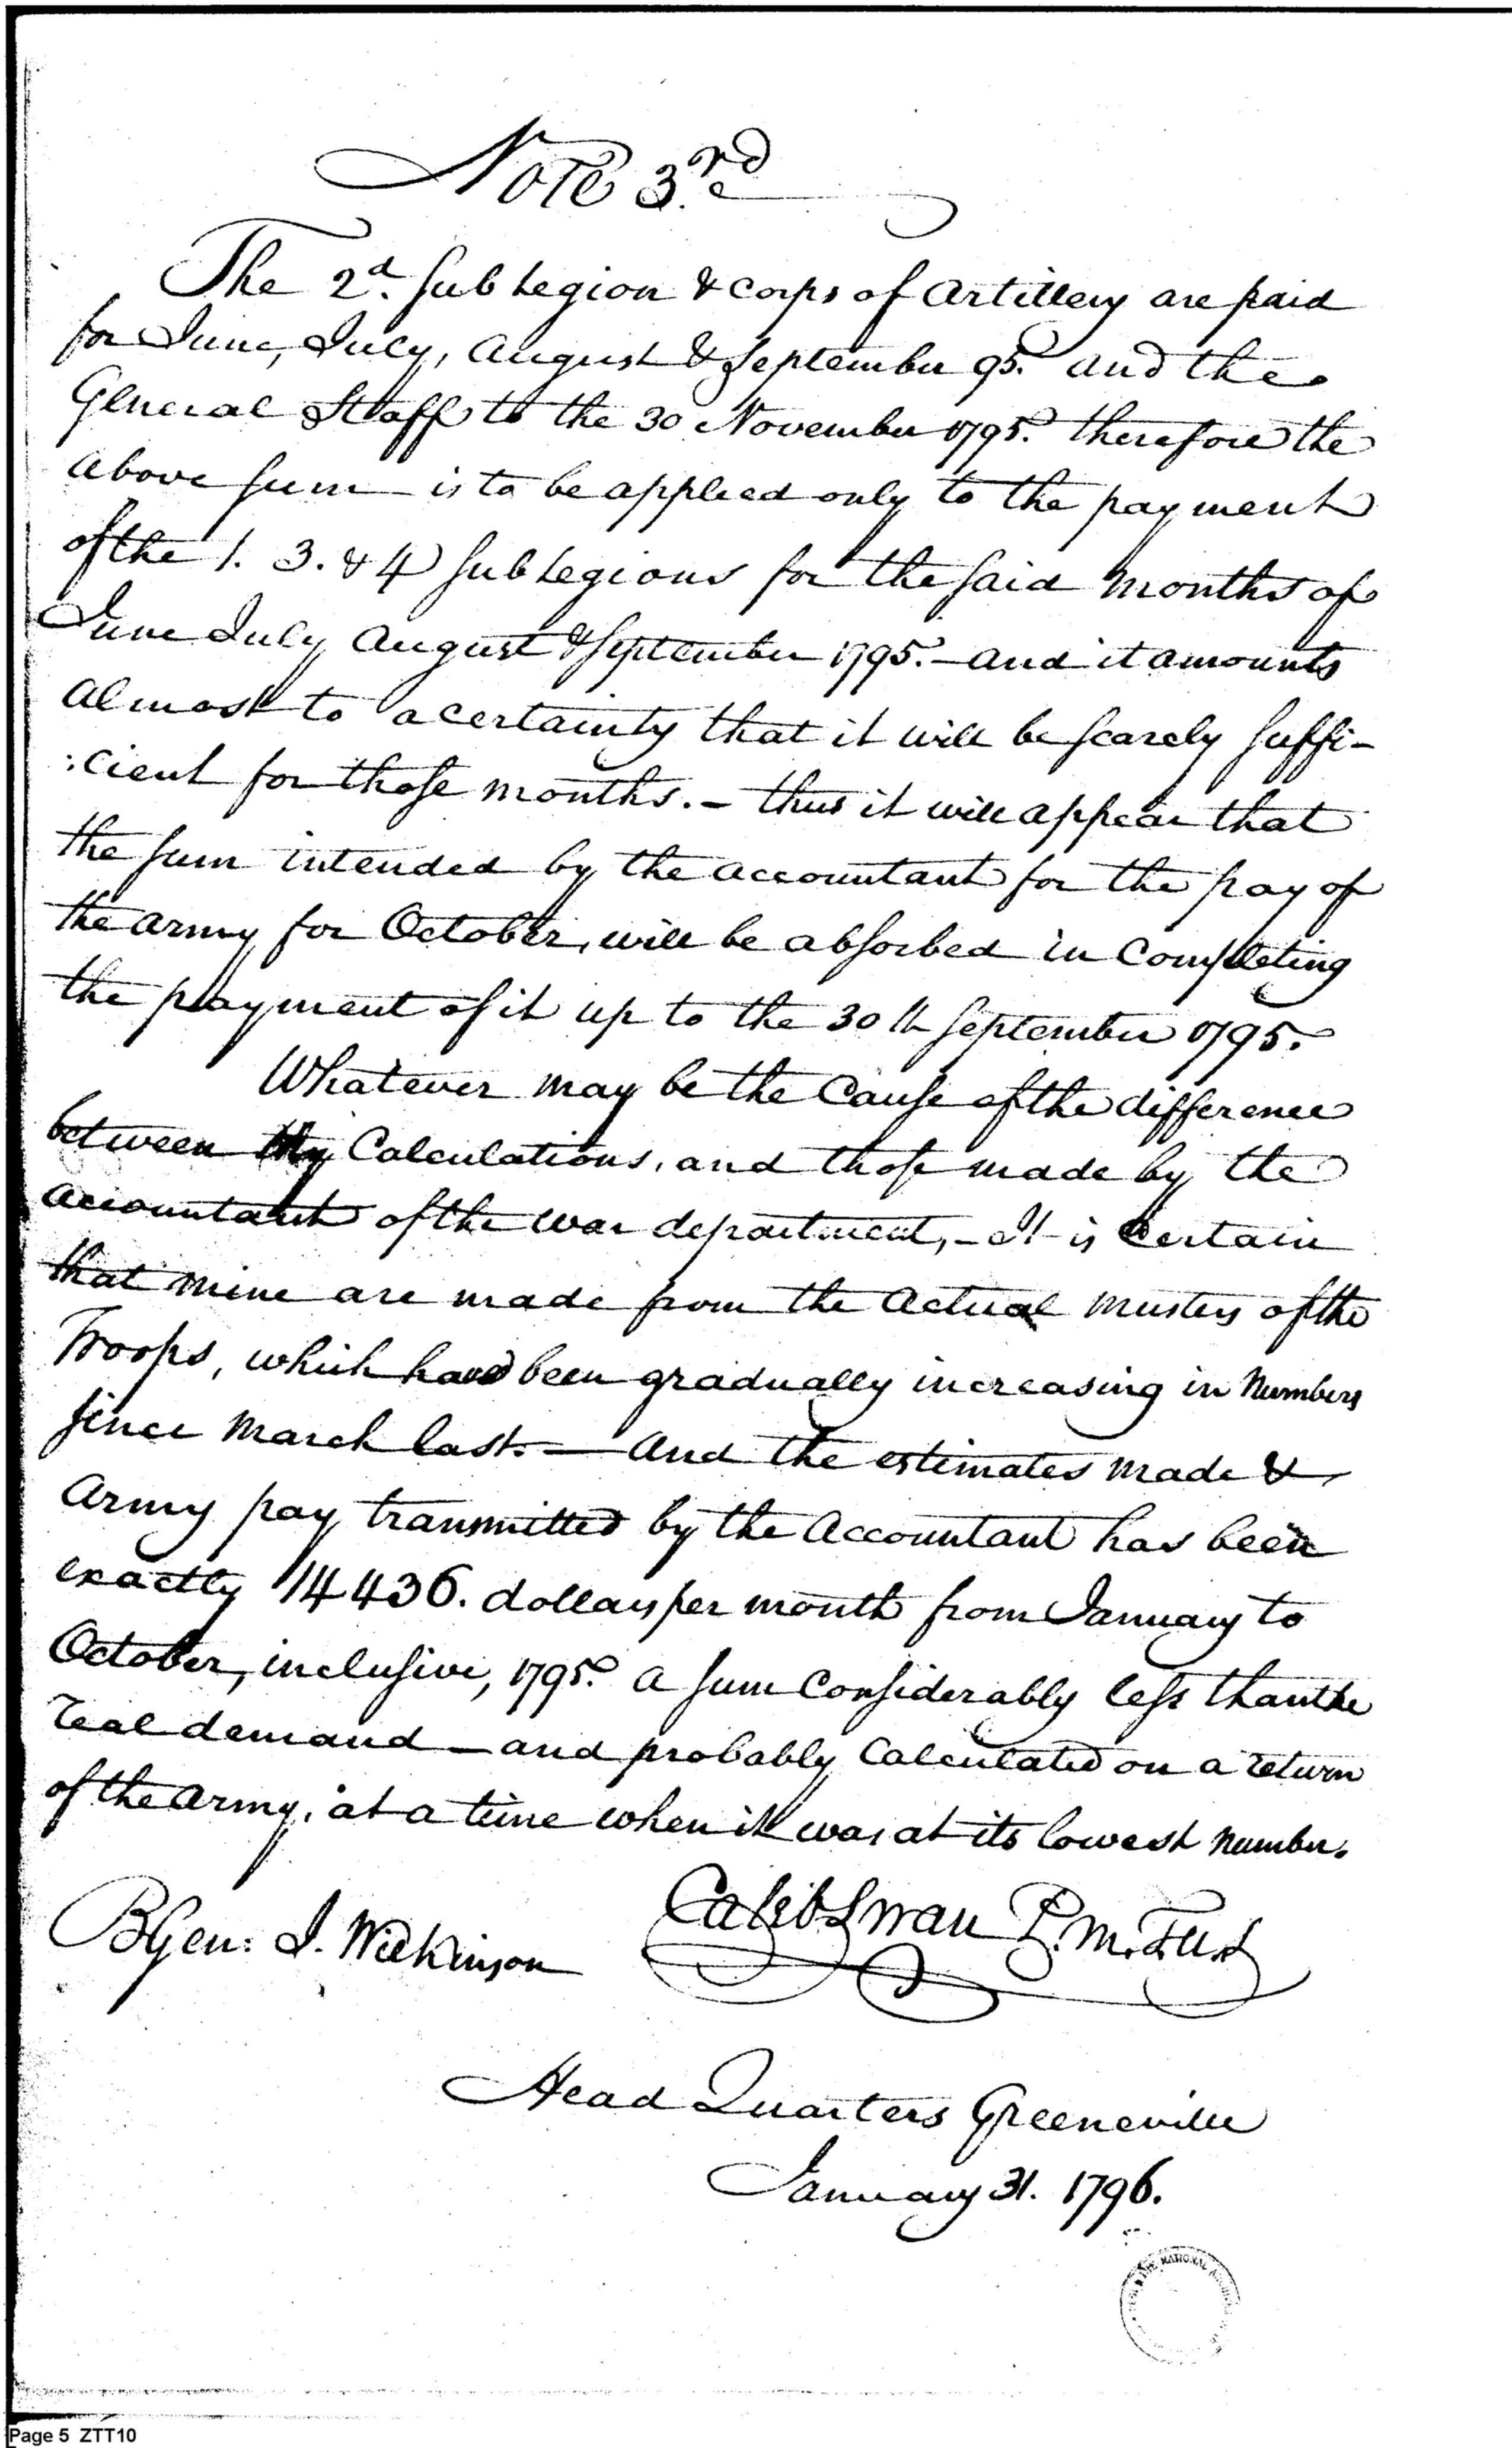 Note 3.rd
The 2.d Sub Legion & Corps of Artillery are paid
for June, July, August & September 95. and the
General Staff to the 30 November 1795. therefore the
above sum is to be applied only to the payment
of the 1. 3. & 4 Sub Legions for the said months of
June July August & September 1795. – and it amounts
almost to a certainty that it will be scarely suffi-
:cient for those months. – thus it will appear that
the sum intended by the accountant for the pay of
the army for October, will be absorbed in Completing
the payment of it up to the 30th September 1795.
Whatever may be the Cause of the difference
between my Calculations, and those made by the
accountant of the war department, – It is Certain
that mine are made from the Actual musters of the
Troops, which have been gradually increasing in Numbers
since March last. – And the estimates made &
Army pay transmitted by the Accountant has been
exactly 14436. dollars per month from January to
October, inclusive, 1795. a sum Considerably less than the
real demand – and probably Calculated on a return
of the army, at a time when it was at its lowest number.
BGen: J. Wilkinson
Caleb Swan P.M.T.U.S
Head Quarters Greeneville
January 31. 1796.
THE NATIONAL
Page 5 ZTT10